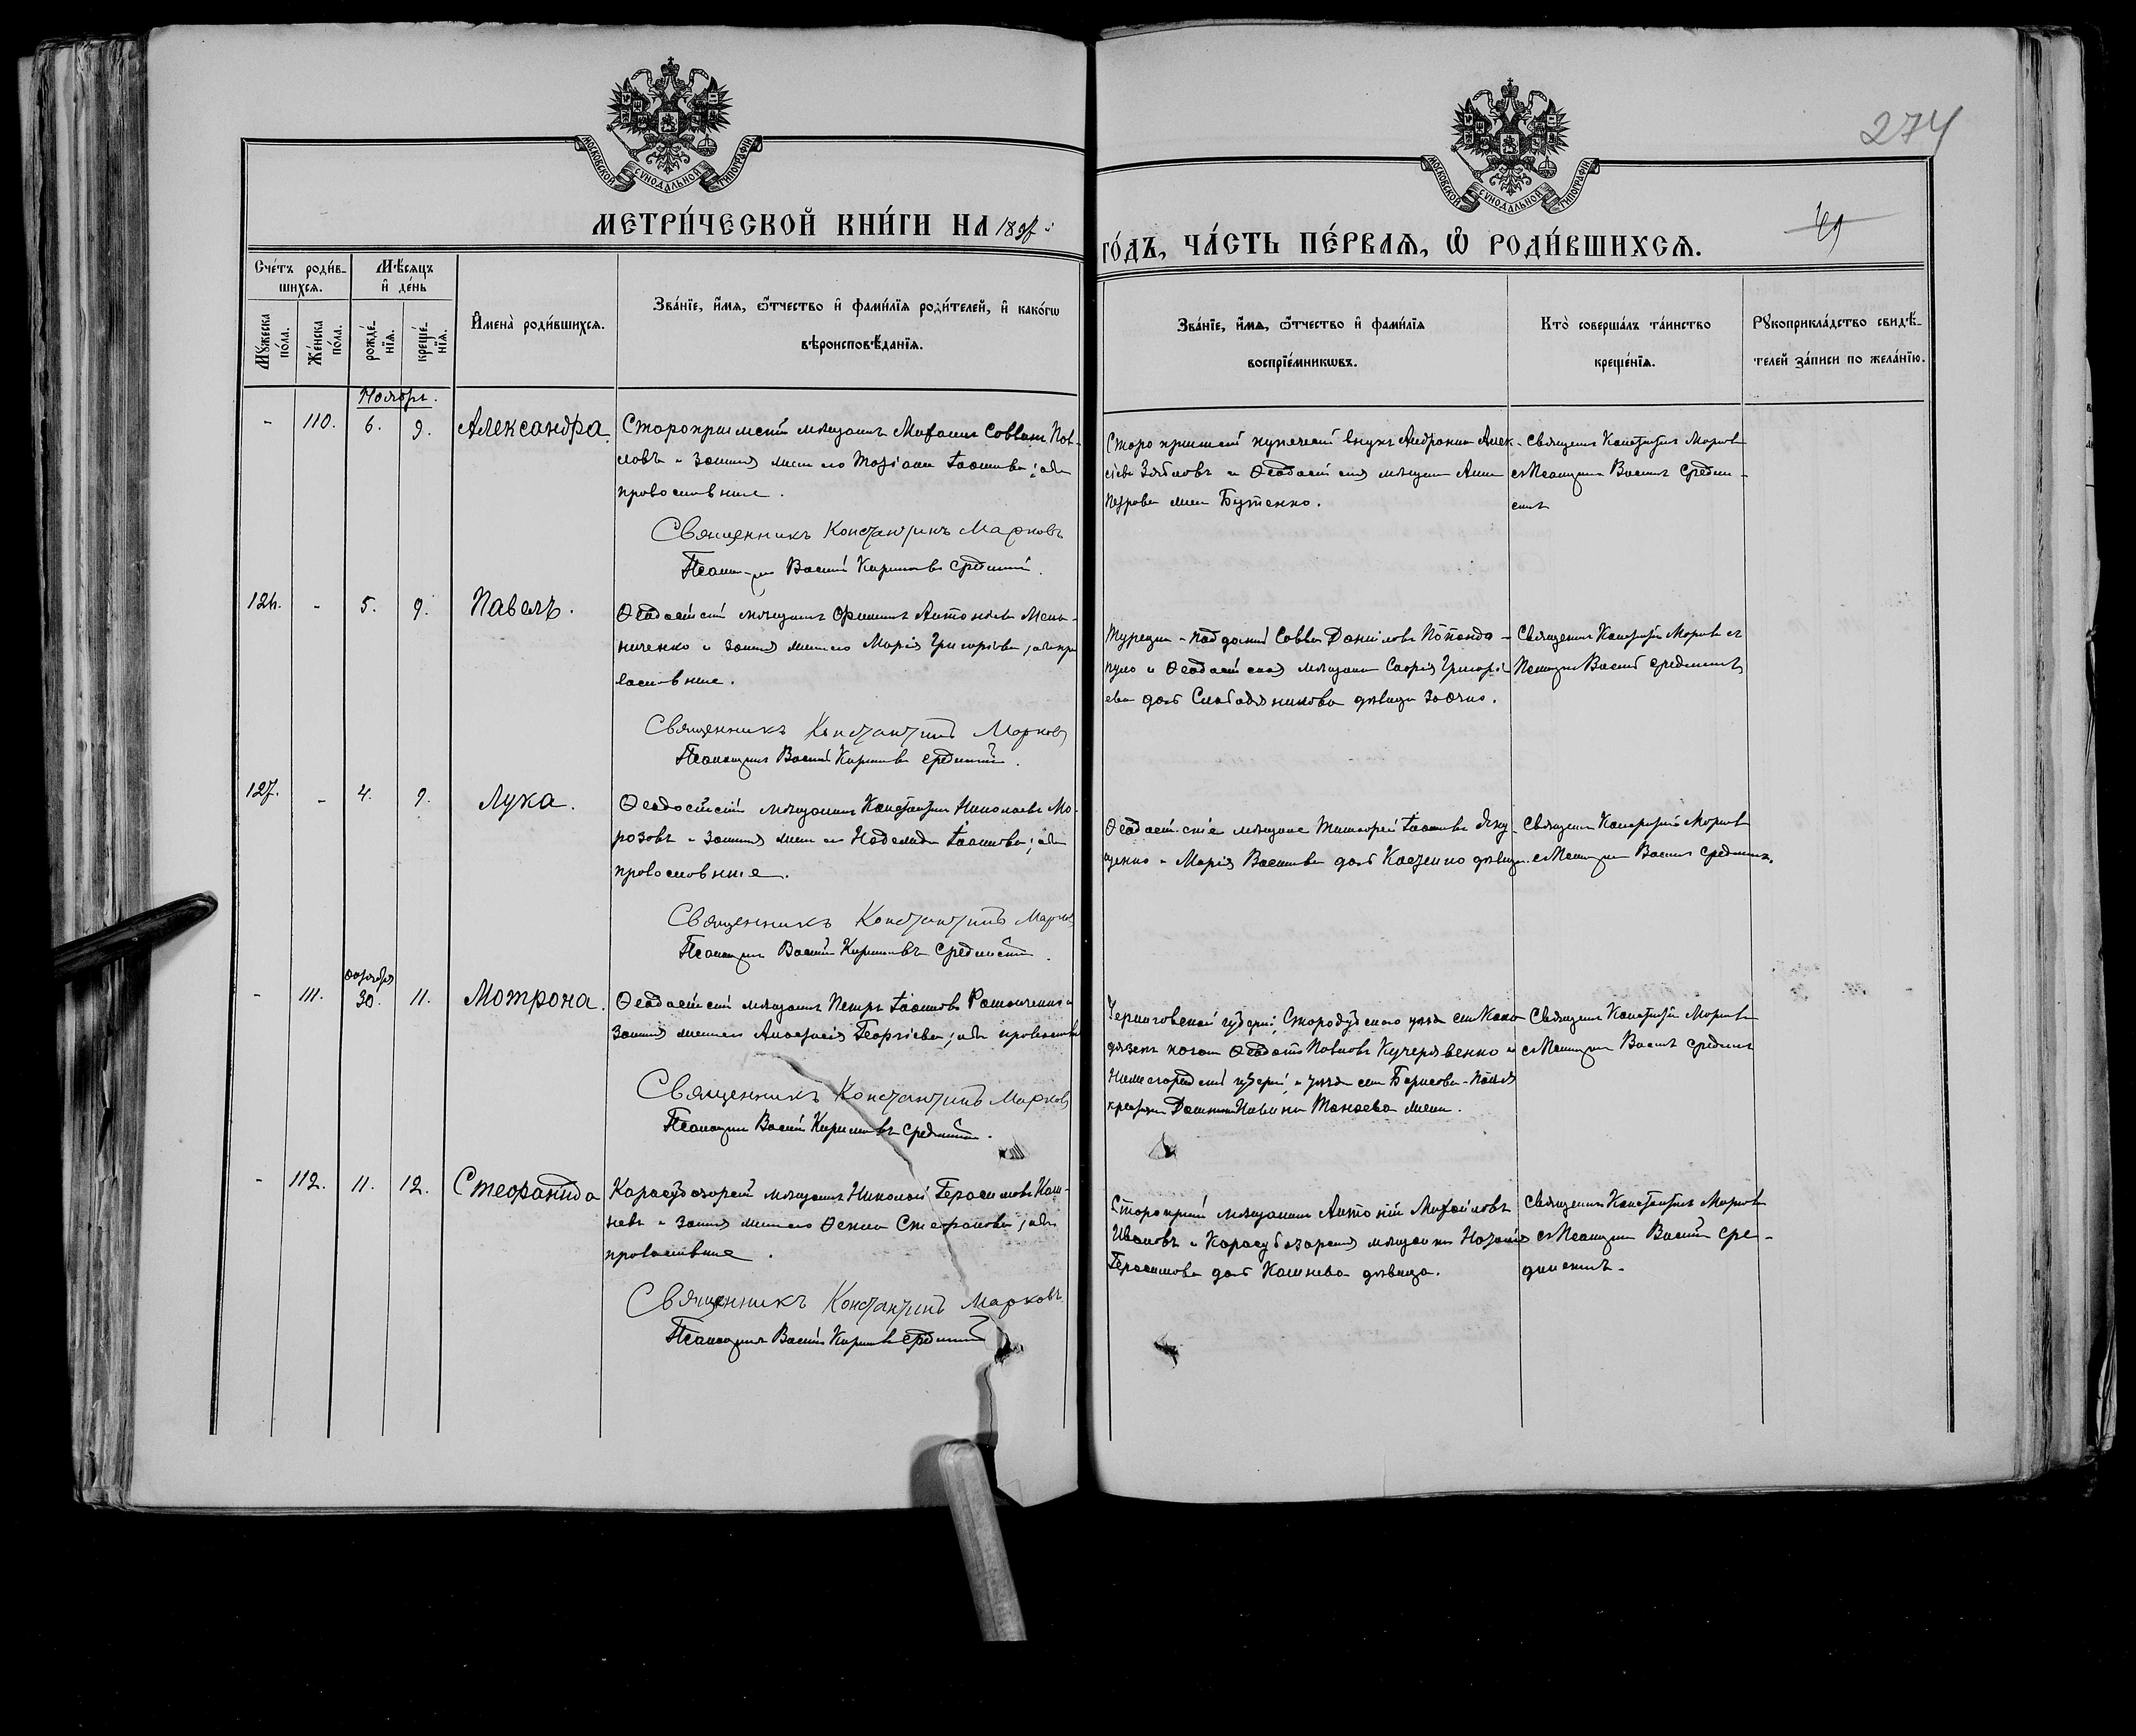 274
49
МОСКОВСКОЙ СѴНОДАЛЬНОЙ ТИПОГРАФІИ
МОСКОВСКОЙ СѴНОДАЛЬНОЙ ТИПОГРАФІИ
МЕТРИ́ЧЕСКОЙ КНИ́ГИ НА 189
ГО́ДЪ, ЧА́СТЬ ПЕ́РВАЯ, Ѿ РОДИ́ВШИХСЯ.
Сче́тъ роди́в-
шихся.
Мꙋ́жеска по́ла.
Же́нска по́ла.
Мѣ́сяцъ и де́нь
рожде́-нїя.
креще́-нїя.
Имена̀ роди́вшихся.
Зва́нїе, и́мя, ѻ́тчество и фами́лїя роди́телей, и како́гѡ
вѣроисповѣ́данїя.
Зва́нїе, и́мя, ѻ́тчество и фами́лїя
воспрїе́мникѡвъ.
Кто̀ соверша́лъ та́инство
креще́нїя.
Рꙋкоприкла́дство свидѣ́-
телей за́писи по жела́нїю.
Ноябрь.
- 110. 6. 9. Александра.
Старокрымскій мѣщанинъ Михаилъ Саввинъ Пав-
ловъ и законная жена его Іоаннова; оба
православные.
Священникъ Константинъ Марковъ
Псаломщикъ Василій Кирилловъ Срединскій.
Старокрымскій купеческій внукъ Алек-
сѣевъ и Ѳеодосійская мѣщанка Анна
Петрова жена Бутенко.
Священникъ Константинъ Марковъ
съ Псаломщикомъ Василіемъ Средин-
скимъ
- 5. 9. Павелъ.
Ѳеодосійскій мѣщанинъ Антоновъ Мель-
ниченко и законная жена его Марія Григорьева; оба пра-
вославные.
Священникъ Константинъ Марковъ
Псаломщикъ Василій Кирилловъ Срединскій.
Турецко-подданный Савва Даниловъ Попандо-
пуло и Ѳеодосійская мѣщанка Григорь-
ева дочь дѣвица заочно.
Священникъ Константинъ Марковъ съ
Псаломщикомъ Василіемъ Срединскимъ
127. - 4. 9. Лука.
Ѳеодосійскій мѣщанинъ Константинъ Николаевъ Мо-
розовъ и законная жена его Надежда Іоаннова; оба
православные.
Священникъ Константинъ Марковъ
Псаломщикъ Василій Кирилловъ Срединскій.
Ѳеодосійскіе мѣщане Тимофей Іоанновъ Яку-
щенко и Марія Васильева дочь дѣвица.
Священникъ Константинъ Марковъ
съ Псаломщикомъ Василіемъ Срединскимъ.
октября
- 111. 30. 11. Мотрона.
Ѳеодосійскій мѣщанинъ Петръ Іоанновъ и
законная жена его Анастасія Георгіева; оба православные
Священникъ Константинъ Марковъ
Псаломщикъ Василій Кирилловъ Срединскій.
Черниговской губерніи, Стародубскаго уѣзда
козакъ Ѳеодотъ Павловъ Кучерявенко и
Нижегородской губерніи и уѣзда села Борисова-Поля
жена.
Священникъ Константинъ Марковъ
съ Псаломщикомъ Василіемъ Срединскимъ
- 112. 11. 12. Стефанида
Карасубазарскій мѣщанинъ Николай Герасимовъ Каш-
невъ и законная жена его Ѳекла Стефанова; оба
православные.
Священникъ Константинъ Марковъ
Псаломщикъ Василій Кирилловъ Срединскій
Старокрымскій мѣщанинъ Антоній Михайловъ
Ивановъ и Карасубазарская мѣщанка
Герасимова дочь Кашнева дѣвица.
Священникъ Константинъ Марковъ
съ Псаломщикомъ Василіемъ Сре-
динскимъ.